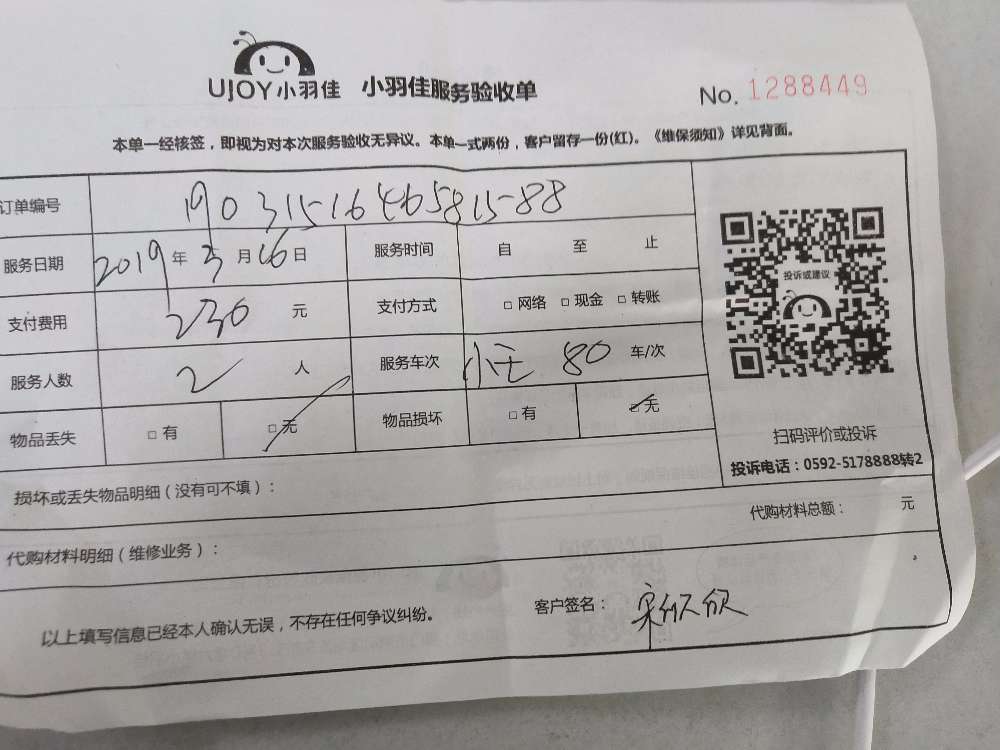 UJOY小羽佳 小羽佳服务验收单 No. 1288449
本单一经核签，即视为对本次服务验收无异议。本单一式两份，客户留存一份(红)。《维保须知》详见背面。
订单编号 19031516465815-88
服务日期 2019年3月16日 服务时间 自 至 止
支付费用 230 元 支付方式 □ 网络 □ 现金 □ 转账
服务人数 2 人 服务车次 80 车/次
物品丢失 □ 有 □ 无 物品损坏 □ 有 □ 无
投诉或建议
扫码评价或投诉
投诉电话：0592-5178888转2
损坏或丢失物品明细（没有可不填）：
代购材料明细（维修业务）： 代购材料总额： 元
以上填写信息已经本人确认无误，不存在任何争议纠纷。 客户签名：